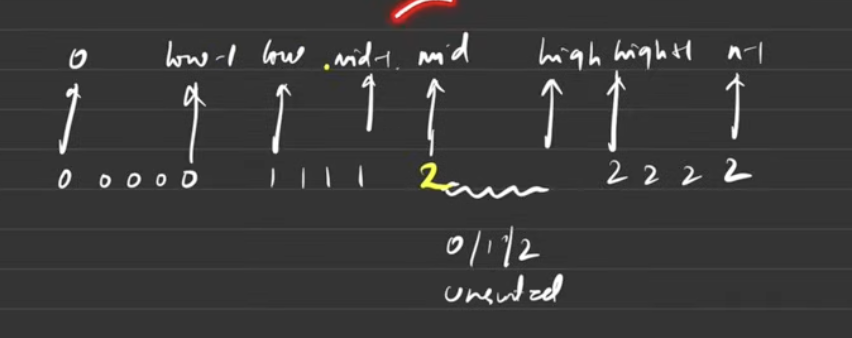 0 low-1 low mid-1 mid high high+1 n-1
0 0 0 0 0 1 1 1 1 2 2 2 2 2
0/1/2
unsorted